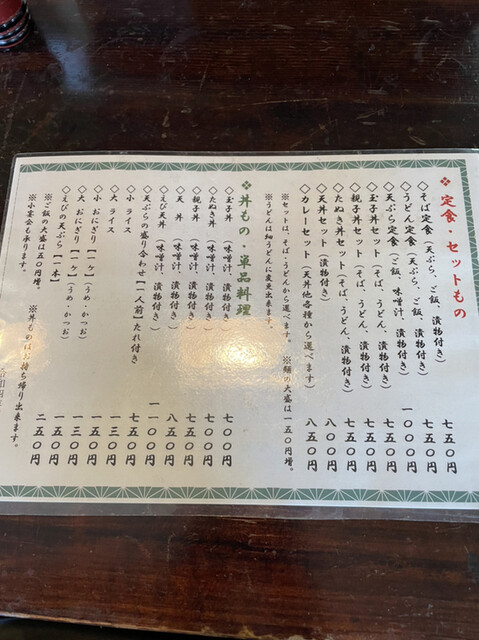 ❖定食・セットもの
◇そば定食（天ぷら、ご飯、漬物付き） 七五〇円
◇うどん定食（天ぷら、ご飯、漬物付き） 七五〇円
◇天ぷら定食（ご飯、味噌汁、漬物付き） 一〇〇〇円
◇玉子丼セット（そば、うどん、漬物付き） 七五〇円
◇親子丼セット（そば、うどん、漬物付き） 七五〇円
◇たぬき丼セット（そば、うどん、漬物付き） 七五〇円
◇天丼セット（漬物付き） 八〇〇円
◇カレーセット（天丼他各種から選べます） 八五〇円
※セットは、そば・うどんから選べます。 ※麺の大盛は一五〇円増。
※うどんは細うどんに変更出来ます。
❖丼もの・単品料理
◇玉子丼（味噌汁、漬物付き） 七〇〇円
◇たぬき丼（味噌汁、漬物付き） 七〇〇円
◇親子丼（味噌汁、漬物付き） 七五〇円
◇天 丼（味噌汁、漬物付き） 八五〇円
◇えび天丼（味噌汁、漬物付き） 一一〇〇円
◇天ぷらの盛り合わせ【一人前】たれ付き 七五〇円
◇小 ライス 一三〇円
◇大 ライス 一五〇円
◇小 おにぎり【一ヶ】（うめ・かつお） 一三〇円
◇大 おにぎり【一ヶ】（うめ・かつお） 一五〇円
◇えびの天ぷら【一本】 二五〇円
※ご飯の大盛は五〇円増。 ※丼ものはお持ち帰り出来ます。
※小宴会も承ります。